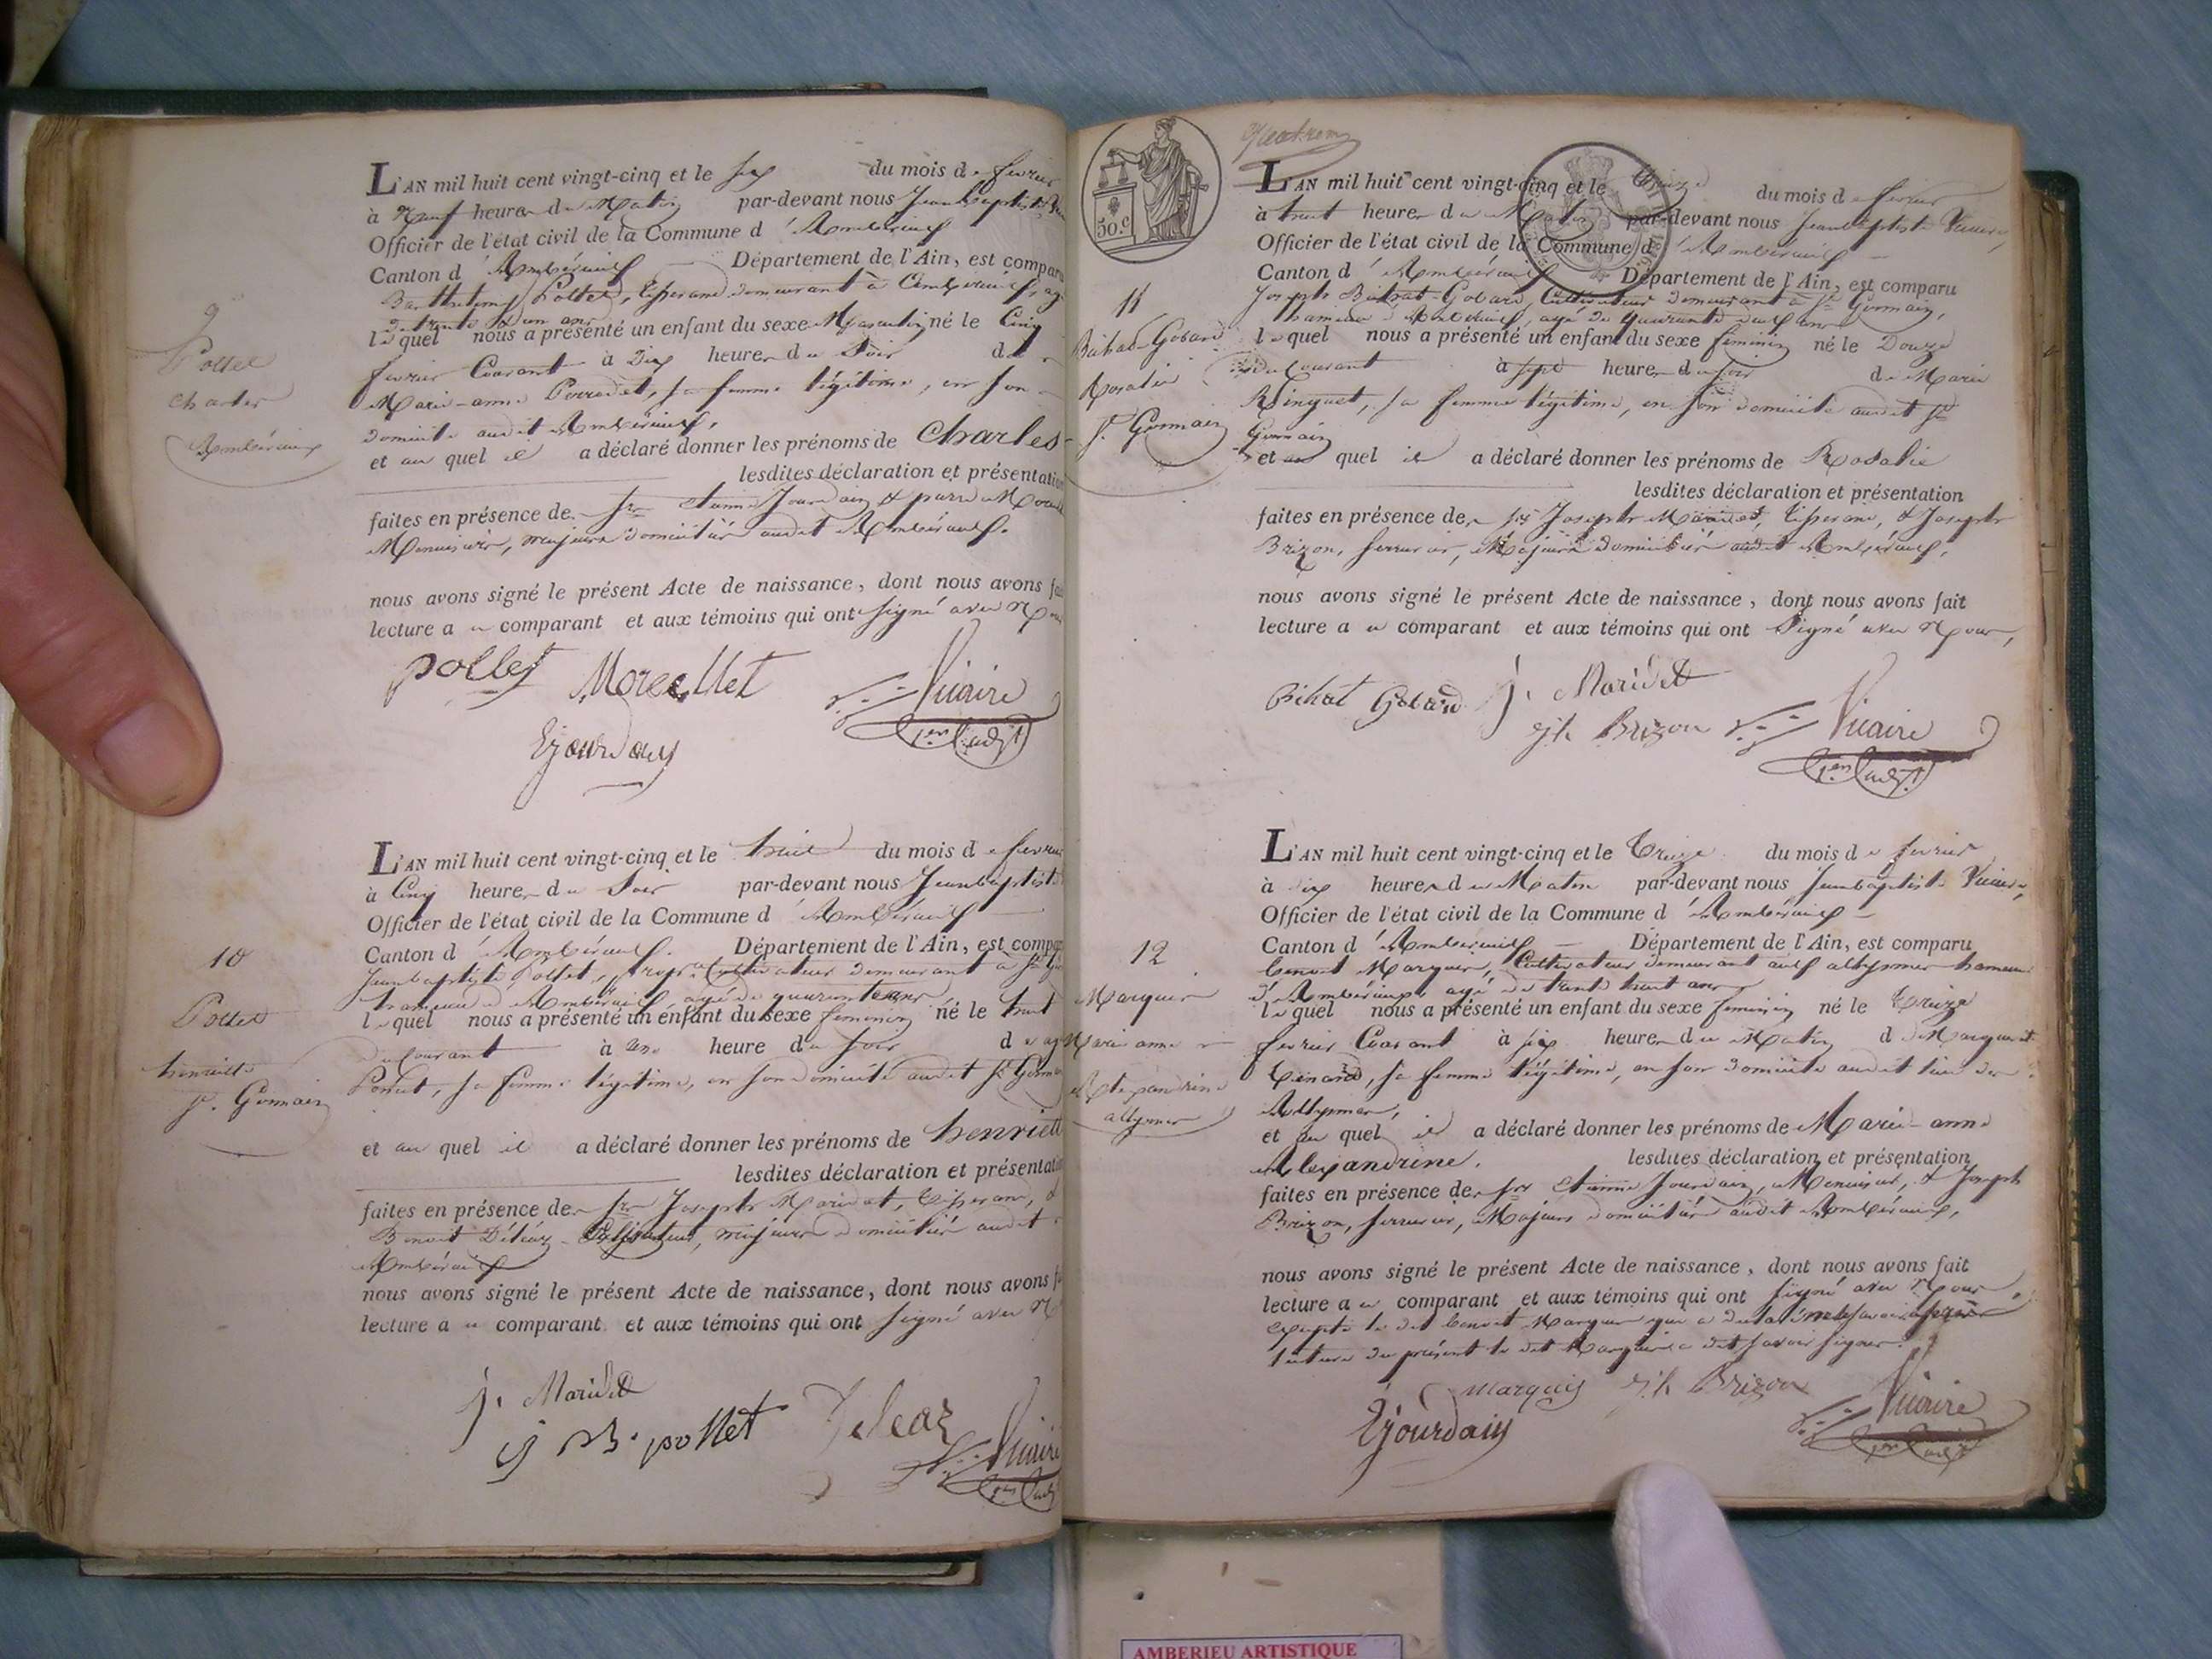 9
Pollet
Charles
Ambérieux
L'AN mil huit cent vingt-cinq et le six du mois de fevrier
à Neuf heures du Matin par-devant nous Jeanbaptiste
Officier de l'état civil de la Commune d'Ambérieux
Canton d'Ambérieux Département de l'Ain, est comparu
Barthelemy Pollet, tisserand demeurant à Ambérieux, agé
de trente un ans
lequel nous a présenté un enfant du sexe Masculin né le Cinq
fevrier Courant à Dix heures du Soir de
Marie-anne Perrodet, sa femme légitime, en son
domicile audit Ambérieux,
et au quel il a déclaré donner les prénoms de Charles
lesdites déclaration et présentation
faites en présence de Srs etienne Jourdain & pierre
Menuisiers, majeurs domiciliés audit Ambérieux.
nous avons signé le présent Acte de naissance, dont nous avons fait
lecture au comparant et aux témoins qui ont signé avec Nous
pollet Morellet Vicaire
Ejourdain 1er adjt
10
Pollet
henriette
St. Germain
L'AN mil huit cent vingt-cinq et le huit du mois de fevrier
à Cinq heures du Soir par-devant nous Jeanbaptiste
Officier de l'état civil de la Commune d'Ambérieux
Canton d'Ambérieux. Département de l'Ain, est comparu
Jeanbaptiste Pollet, Cultivateur demeurant à St
hameau d'Ambérieux, agé de quarante ans
lequel nous a présenté un enfant du sexe feminin né le huit
du Courant à une heure du soir de
Poncet, sa femme légitime, en son domicile audit St Germain
et au quel il a déclaré donner les prénoms de henriette
lesdites déclaration et présentation
faites en présence de Srs Joseph Maridet, tisserand, &
Benoit Déléaz Cultivateur, majeurs domiciliés audit
Ambérieux
nous avons signé le présent Acte de naissance, dont nous avons fait
lecture au comparant et aux témoins qui ont signé avec
j. Maridet
j B. pollet Deleaz Vicaire
1er adjt
50.c
11
Bihat-Gobard
Rosalie
St. Germain
L'AN mil huit cent vingt-cinq et le treize du mois de fevrier
à huit heures du Matin par-devant nous Jeanbaptiste Vicaire,
Officier de l'état civil de la Commune d'Ambérieux
Canton d'Ambérieux Département de l'Ain, est comparu
Joseph Bihat-Gobard, Cultivateur demeurant à St Germain,
hameau d'Ambérieux, agé de quarante deux ans
lequel nous a présenté un enfant du sexe feminin né le Douze
du Courant à sept heures du soir de Marie
Ringuet, sa femme légitime, en son domicile audit St
Germain
et au quel il a déclaré donner les prénoms de Rosalie
lesdites déclaration et présentation
faites en présence de Srs Joseph Maridet, tisserand, & Joseph
Brizon, serrurier, Majeurs domiciliés audit Ambérieux,
nous avons signé le présent Acte de naissance, dont nous avons fait
lecture au comparant et aux témoins qui ont Signé avec Nous,
Bihat Gobard j. Maridet
jh Brizon Vicaire
1er adjt
12
Marquis
Marie anne
Alexandrine
allymes
L'AN mil huit cent vingt-cinq et le Treize du mois de fevrier
à dix heures du Matin par-devant nous Jeanbaptiste Vicaire,
Officier de l'état civil de la Commune d'Ambérieux
Canton d'Ambérieux Département de l'Ain, est comparu
benoit Marquis, Cultivateur demeurant aux allymes hameau
d'Ambérieux, agé de trente huit ans
lequel nous a présenté un enfant du sexe feminin né le treize
fevrier Courant à six heures du Matin de Marguerite
Benard, sa femme légitime, en son domicile audit lieu des
Allymes,
et au quel il a déclaré donner les prénoms de Marie-anne
Alexandrine. lesdites déclaration et présentation
faites en présence de Srs etienne Jourdain, Menuisier, & Joseph
Brizon, serrurier, Majeurs domiciliés audit Ambérieux,
nous avons signé le présent Acte de naissance, dont nous avons fait
lecture au comparant et aux témoins qui ont signé avec Nous
excepté le dit benoit Marquis qui a déclaré
lecture du présent le dit Marquis a dit savoir signer.
marquis jh Brizon Vicaire
Ejourdain 1er adjt
AMBERIEU ARTISTIQUE